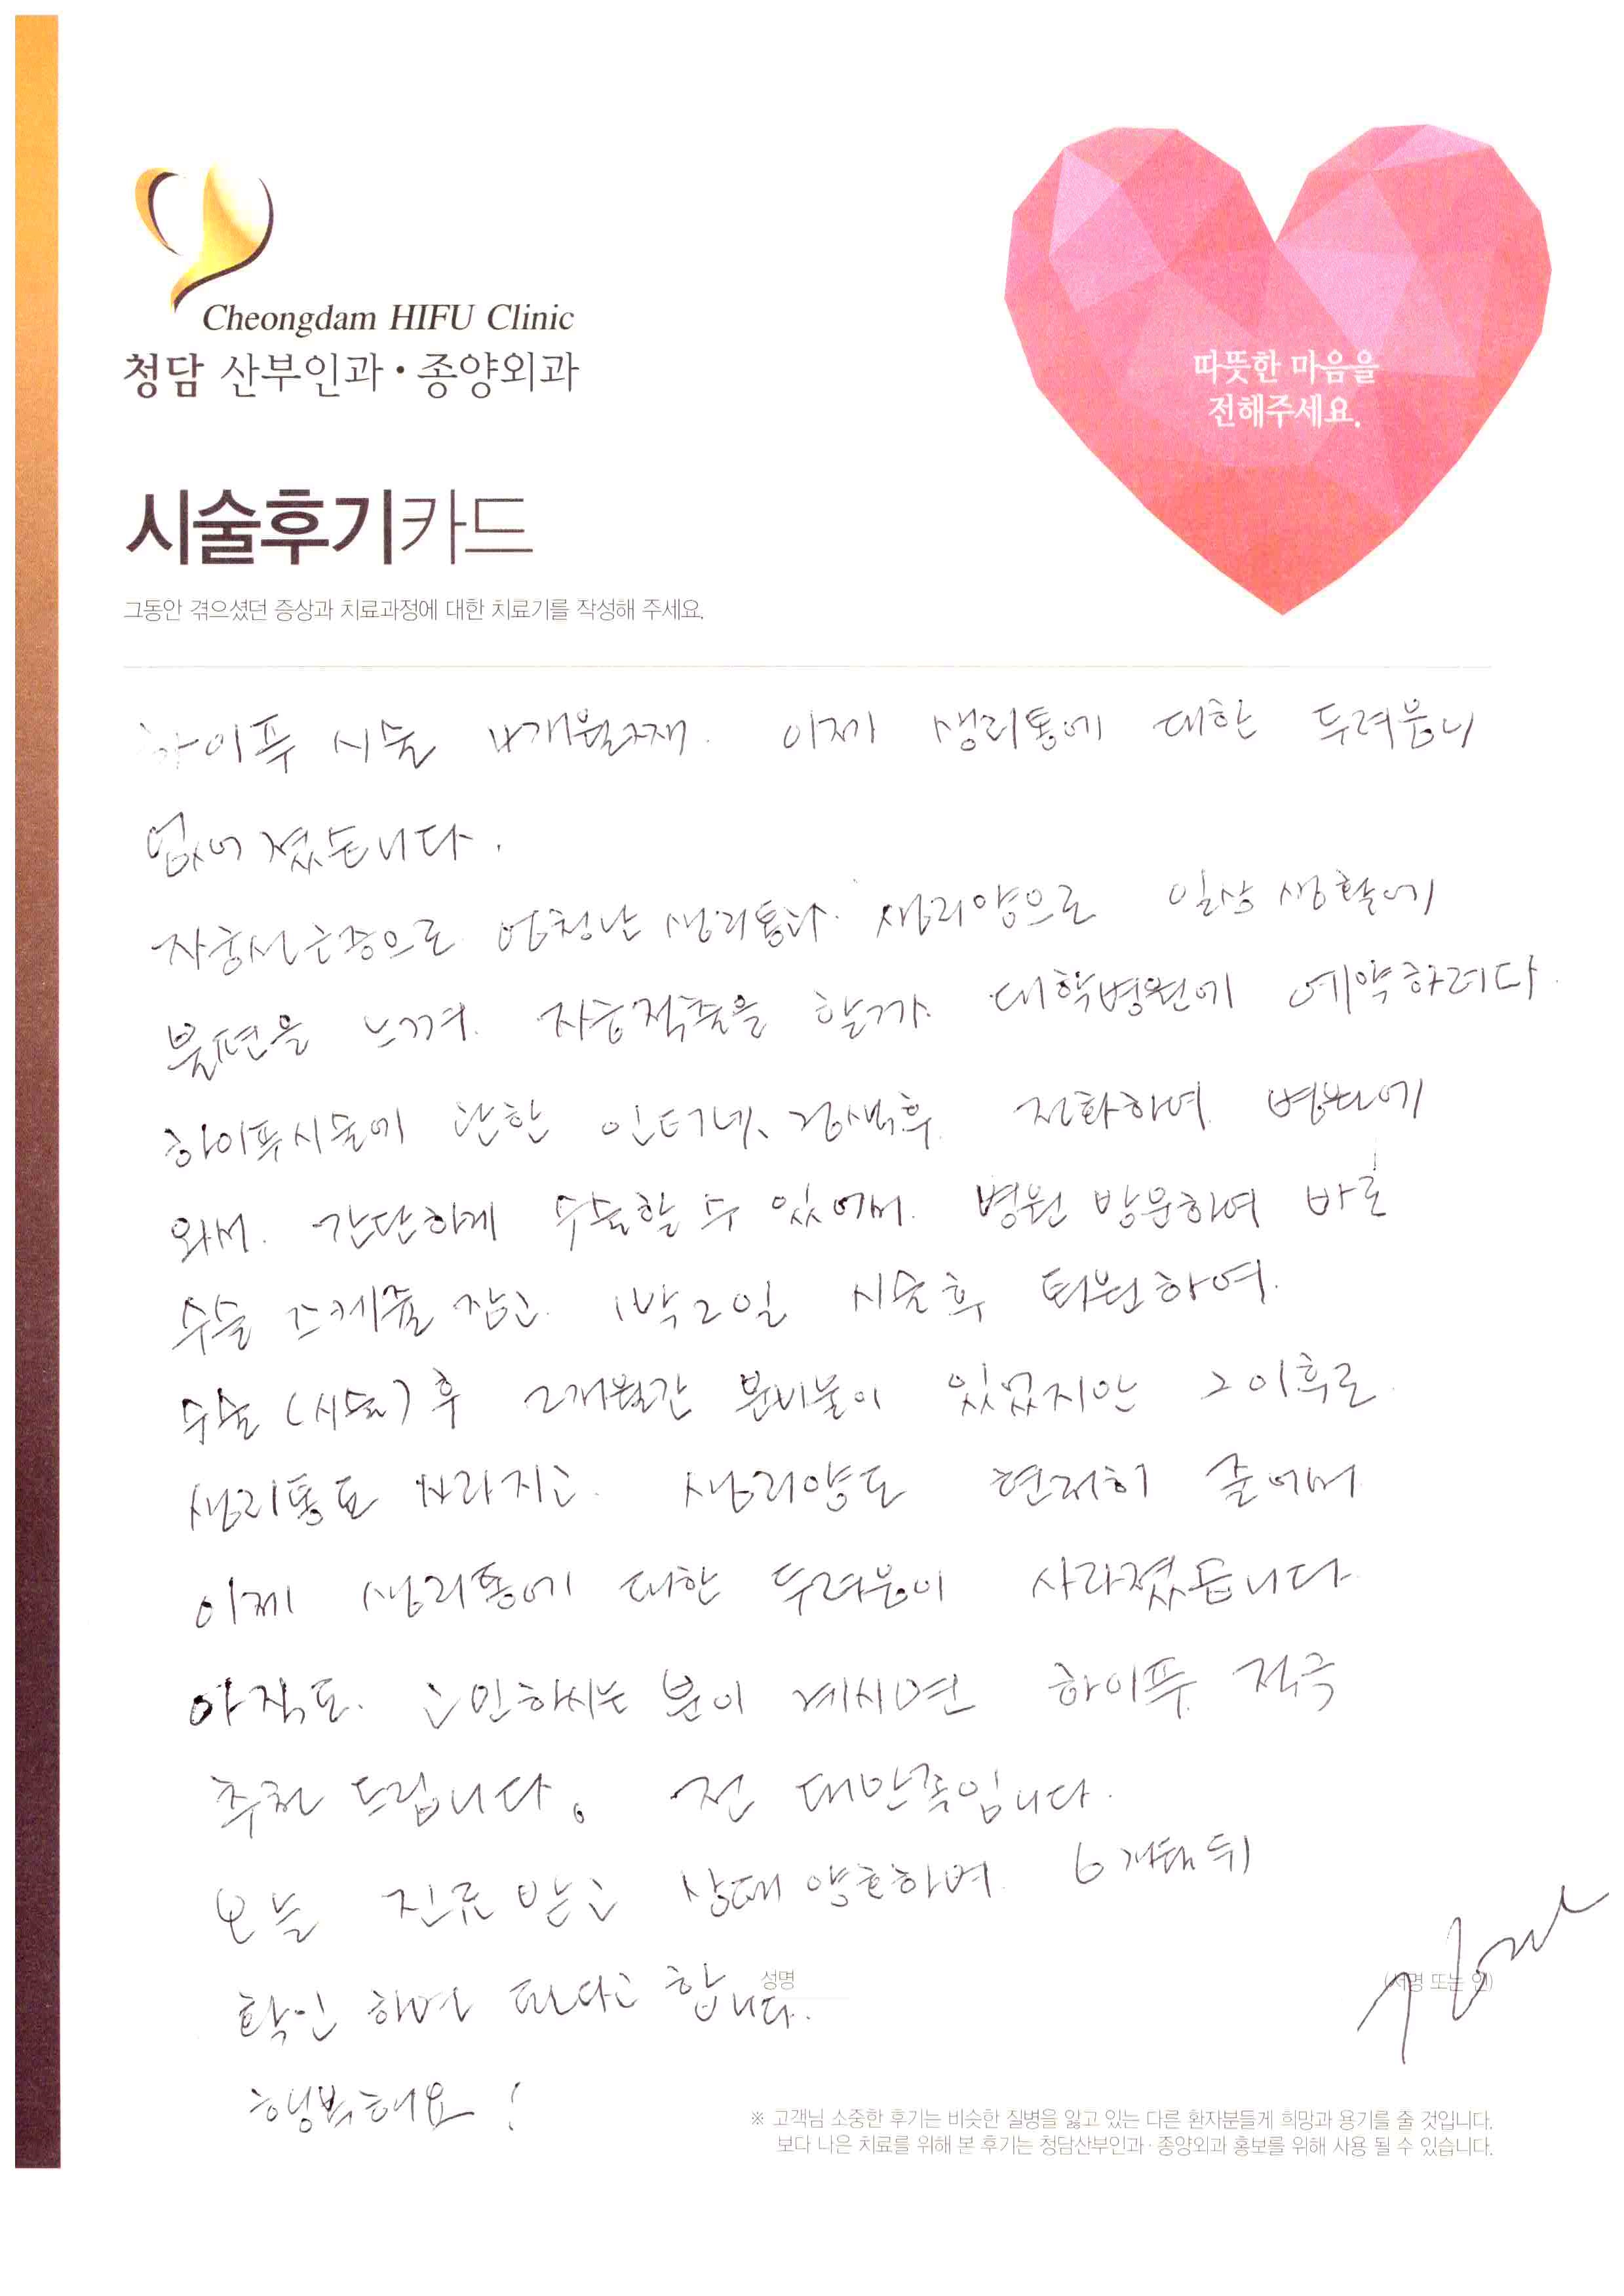 Cheongdam HIFU Clinic
청담 산부인과·종양외과
따뜻한 마음을
전해주세요.
시술후기카드
그동안 겪으셨던 증상과 치료과정에 대한 치료기를 작성해 주세요.
하이푸 시술 4개월째. 이제 생리통에 대한 두려움이
없어졌습니다.
자궁선근증으로 엄청난 생리통과 생리양으로 일상생활에
불편을 느껴. 자궁적출을 할까 대학병원에 예약하려다.
하이푸시술에 관한 인터넷 검색후 전화하여 병원에
와서. 간단하게 수술할 수 있어서. 병원 방문하여 바로
수술 스케쥴 잡고. 1박2일 시술후 퇴원하여.
수술(시술)후 2개월간 분비물이 있었지만 그 이후로
생리통도 사라지고. 생리양도 현저히 줄어서
이제 생리통에 대한 두려움이 사라졌습니다
아직도. 고민하시는 분이 계시면 하이푸 적극
추천 드립니다. 전 대만족입니다.
오늘 진료받고 상태 양호하며 6개월뒤
확인 하면 된다고 합니다.
성명
(서명 또는 인)
행복해요!
※ 고객님 소중한 후기는 비슷한 질병을 앓고 있는 다른 환자분들게 희망과 용기를 줄 것입니다.
보다 나은 치료를 위해 본 후기는 청담산부인과·종양외과 홍보를 위해 사용 될 수 있습니다.